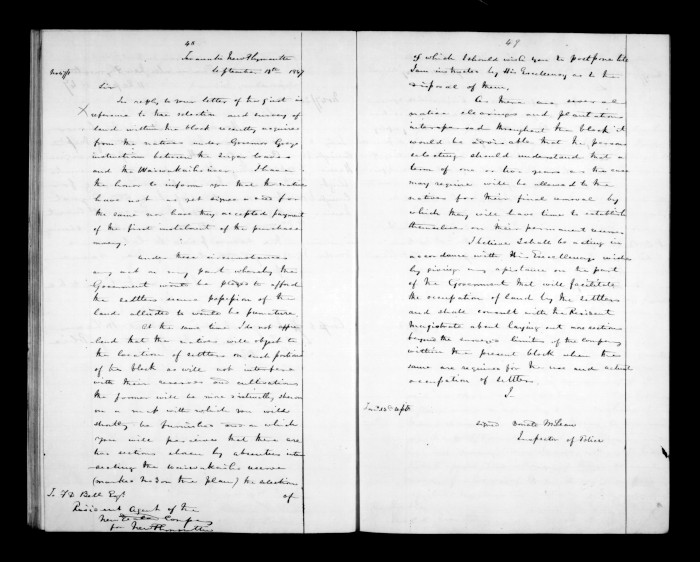 48
Taranaki New Plymouth
September 18th 1847
Sir
In reply to your letter of the 9 inst in
reference to the selection and survey of
land within the block recently acquired
from the natives under Governor Grey's
instructions between the Sugar loaves
and the Waiwakaiho river, I have
the honor to inform you that the natives
have not as yet signed a deed for
the same nor have they accepted payment
of the first instalment of the purchase
money.
Under these circumstances
any act on my part whereby the
Government would be pledged to afford
the settlers secure possession of the
land allotted to would be premature.
At the same time I do not
that the natives will object to
the location of settlers on such portions
of the block as will not interfere
with their reserves and cultivations
the former will be more distinctly shown
on a map with which you will
shortly be furnished and which
you will perceive that there are
two sections chosen by absentees
the Waiwakaiho reserve
(marked No 3 on the plan) the selection
of
To F D Bell Esqr
Resident Agent of the
New Zealand Company
New Plymouth
49
of which I should wish you to postpone till
I am instructed by His Excellency as to the
disposal of them.
As there are several
native clearings and plantations
interspersed throughout the block it
would be desirable that the persons
selecting should understand that a
term of one or two years as the case
may require will be allowed to the
natives for their final removal by
which they will have time to establish
themselves on their permanent reserves
I believe I shall be acting in
accordance with His Excellency's wishes
by giving any assistance on the part
of the Government that will facilitate
the occupation of land by the settlers
and shall consult with the Resident
Magistrate about laying out more sections
beyond the surveyed limits of the Company
within the present block when the
same are required for the use and actual
occupation of settlers.
I
signed Donald McLean
Inspector of Police